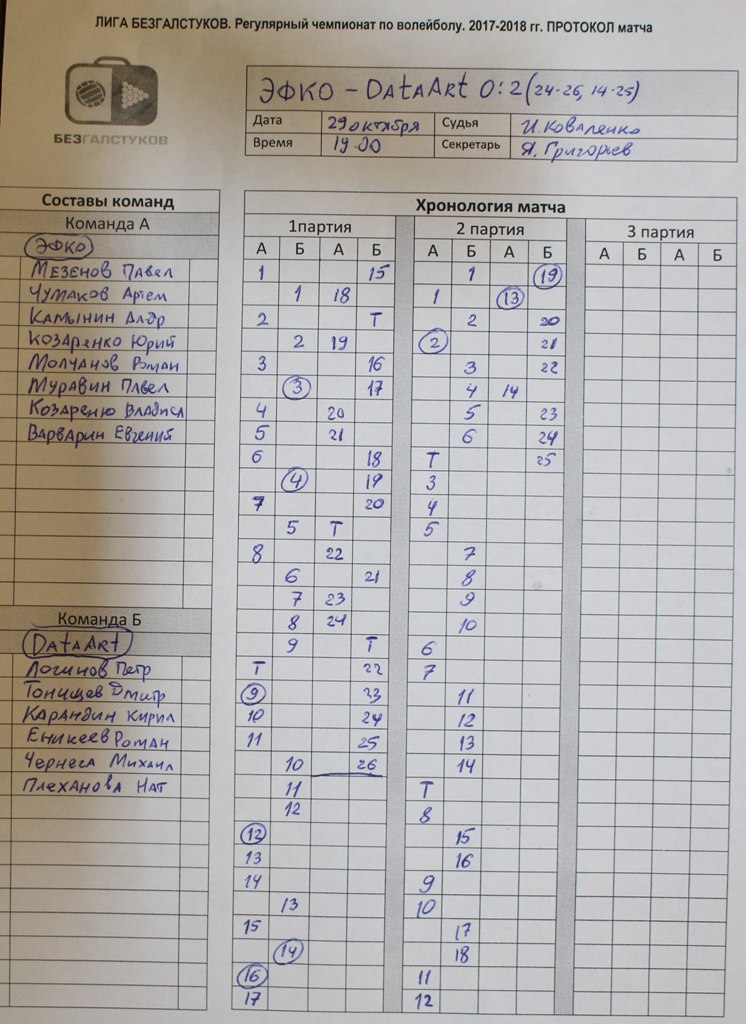 ЛИГА БЕЗГАЛСТУКОВ. Регулярный чемпионат по волейболу. 2017-2018 гг. ПРОТОКОЛ матча
БЕЗГАЛСТУКОВ
ЭФКО - DataArt 0:2 (24-26, 14-25)
Дата 29 октября Судья И. Коваленко
Время 19.00 Секретарь Я. Григорьев
Составы команд Хронология матча
Команда А 1партия 2 партия 3 партия
ЭФКО А Б А Б А Б А Б А Б А Б
Мезенов Павел 1 15 1 19
Чумаков Артем 1 18 1 13
Камынин Алдр 2 Т 2 20
Козаренко Юрий 2 19 2 21
Молчанов Роман 3 16 3 22
Муравин Павел 3 17 4 14
Козаренко Владисл 4 20 5 23
Варварин Евгений 5 21 6 24
6 18 Т 25
4 19 3
7 20 4
5 Т 5
8 22 7
6 21 8
7 23 9
Команда Б 8 24 10
DataArt 9 Т 6
Логинов Петр Т 22 7
Тонищев Дмитр 9 23 11
Карандин Кирил 10 24 12
Еникеев Роман 11 25 13
Чернега Михаил 10 26 14
Плеханова Нат 11 Т
12 8
12 15
13 16
14 9
13 10
15 17
14 18
16 11
17 12